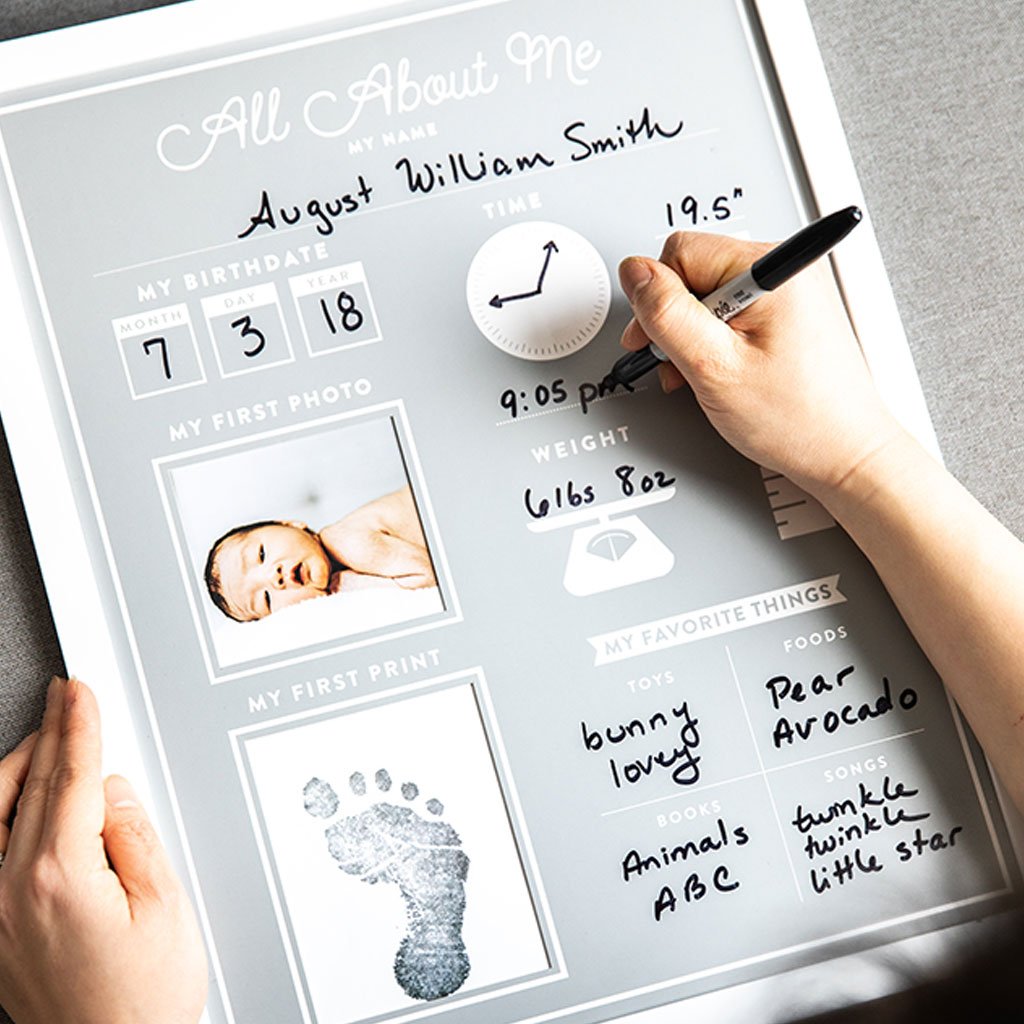 All About Me
MY NAME
August William Smith
MY BIRTHDATE
MONTH DAY YEAR
7 3 18
TIME
9:05 pm
19.5"
MY FIRST PHOTO
WEIGHT
6lbs 8oz
MY FIRST PRINT
MY FAVORITE THINGS
TOYS
bunny
lovey
FOODS
Pear
Avocado
BOOKS
Animals
ABC
SONGS
twinkle
twinkle
little star